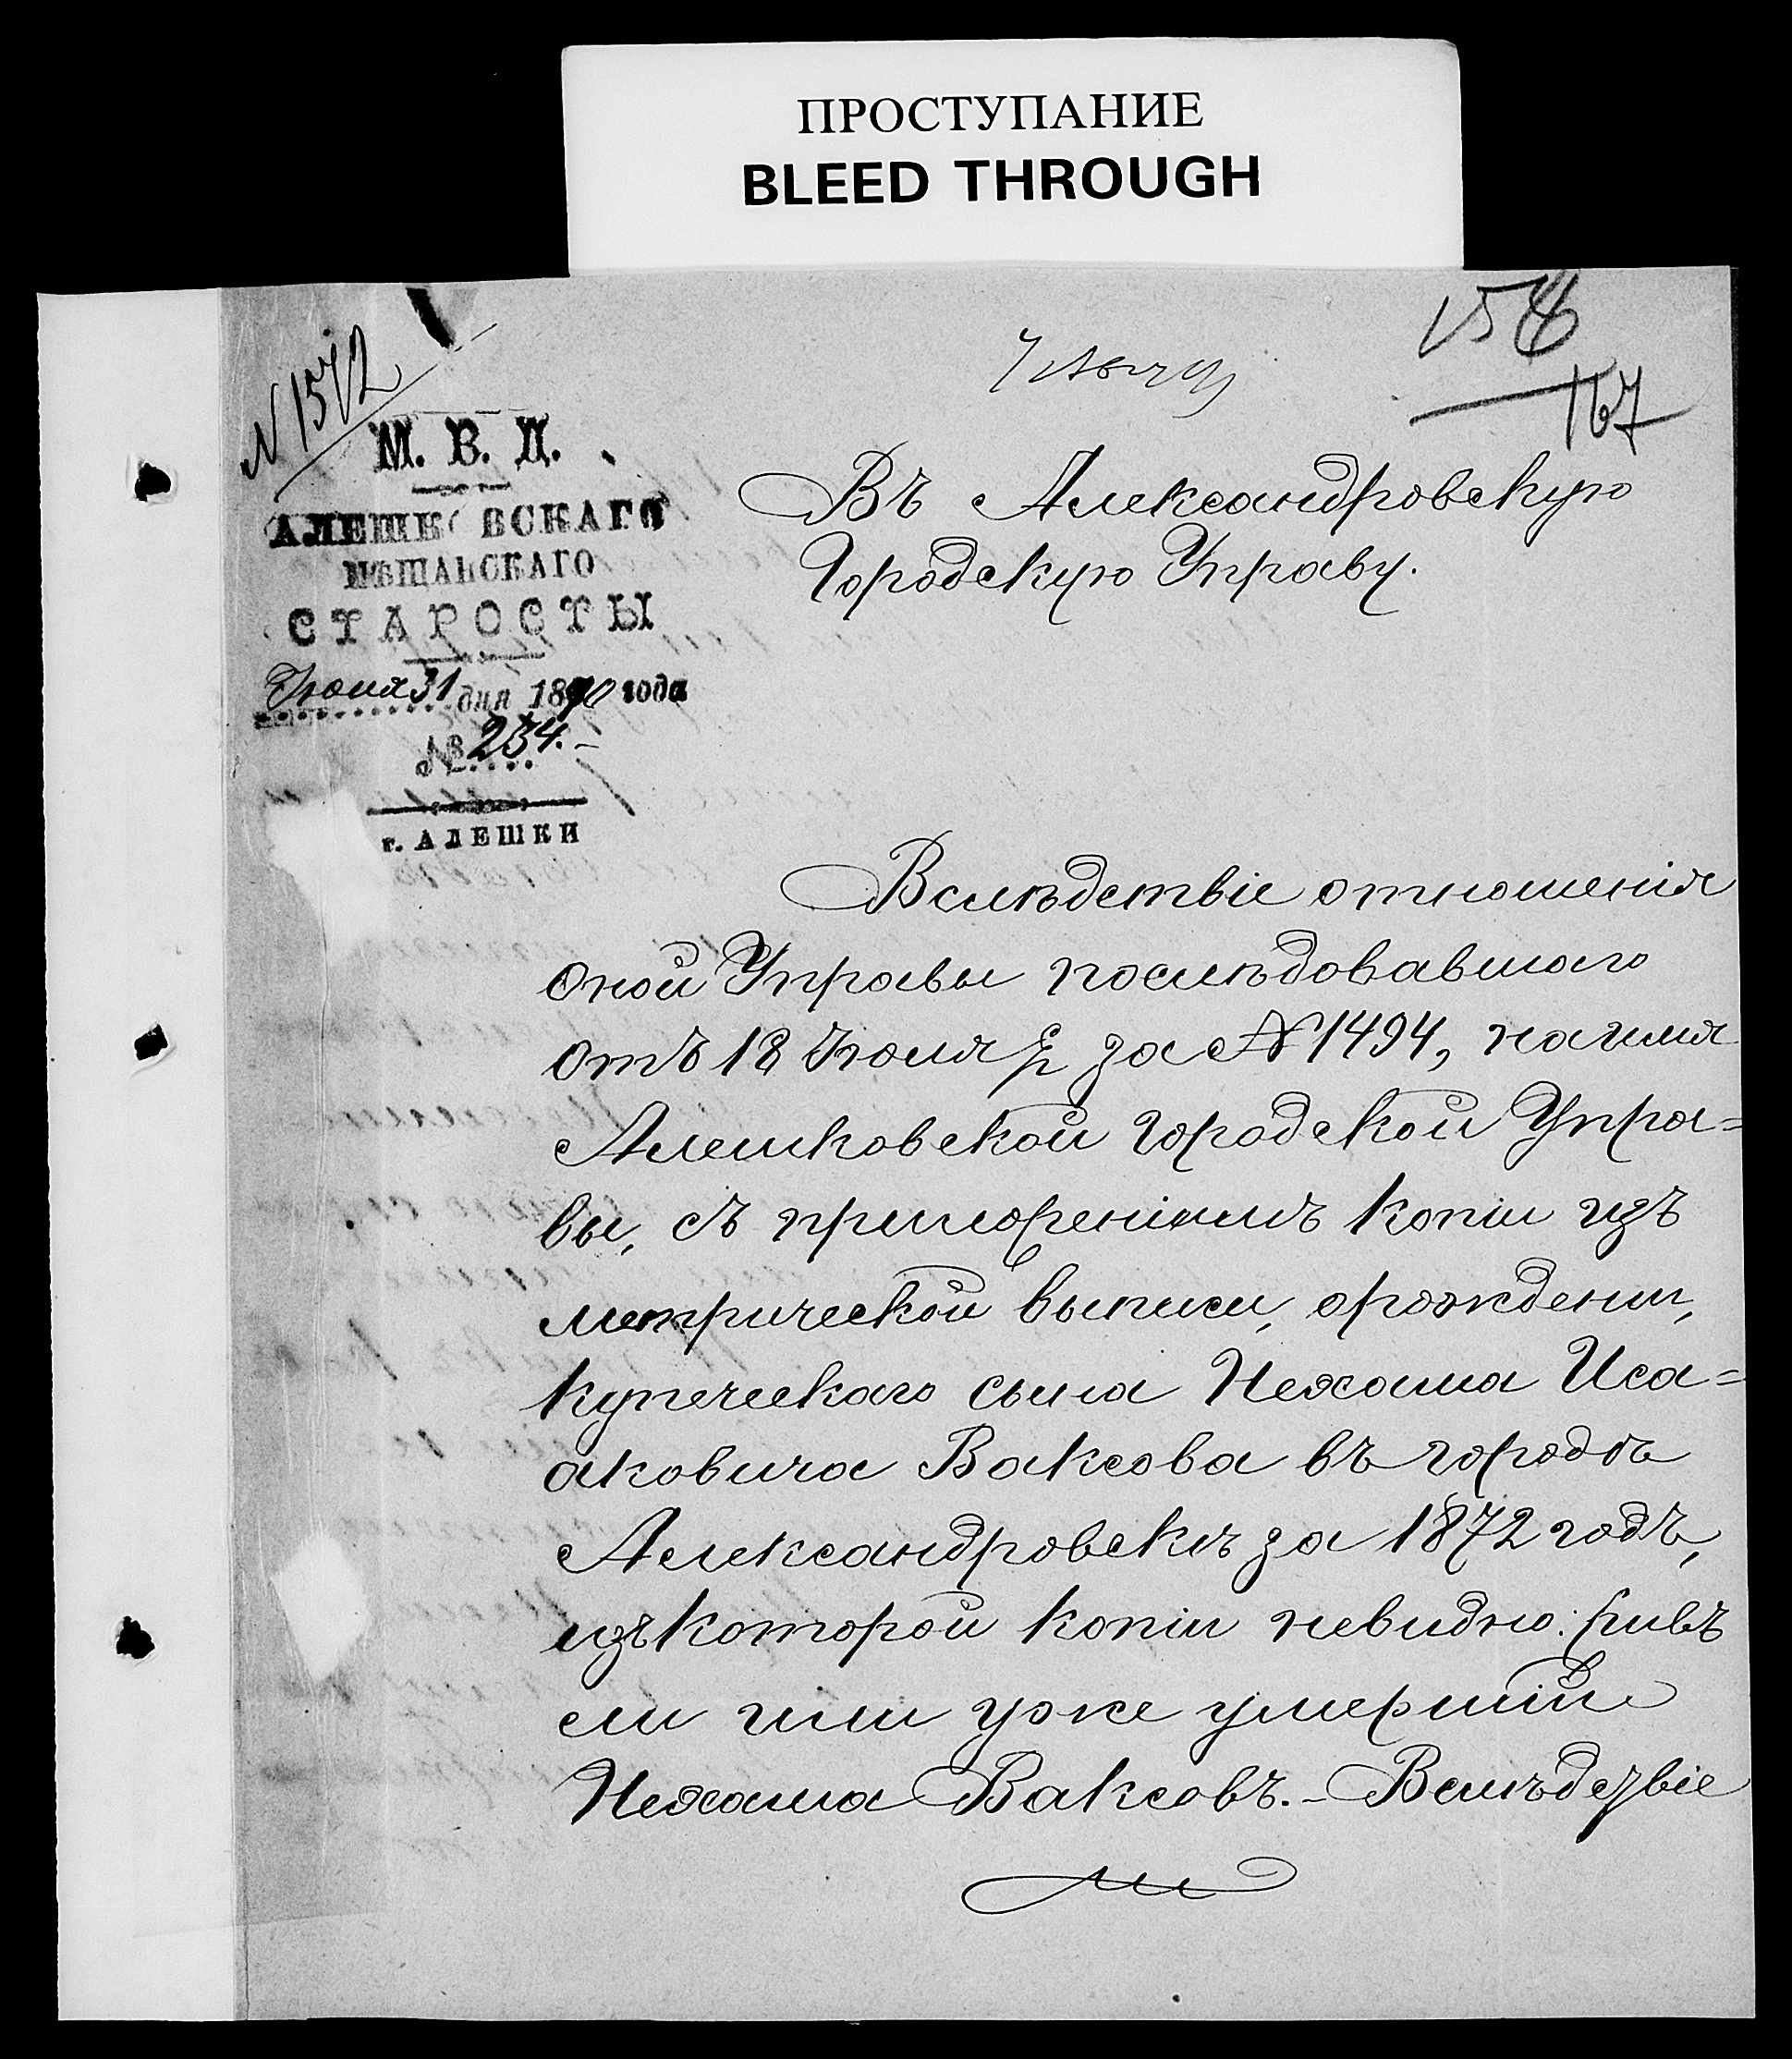 ПРОСТУПАНИЕ
BLEED THROUGH
158
167
N 1572
М. В. Д.
АЛЕШКОВСКАГО
МѢЩАНСКАГО
СТАРОСТЫ
Іюля 31 дня 1890 года
№ 234.
г. АЛЕШКИ
Въ Александровскую
Городскую Управу.
Вслѣдствіе отношенія
оной Управы послѣдовавшаго
отъ 18 Іюля за № 1494, на имя
Алешковской Городской Упра=
вы, съ приложеніемъ копіи изъ
метрической выписи, о рожденіи,
купеческаго сына Нехама Иса=
аковича Ваксова въ городѣ
Александровскѣ за 1872 годъ,
изъ которой копіи невидно: живъ
ли или уже умершій
Нехама Ваксовъ. - Вслѣдствіе